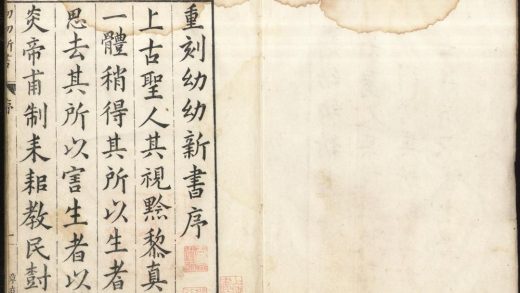 重刻幼幼新書序
上古聖人其視黔黎真
一體稍得其所以生者
思去其所以害生者以
炎帝甫制耒耜教民對
序